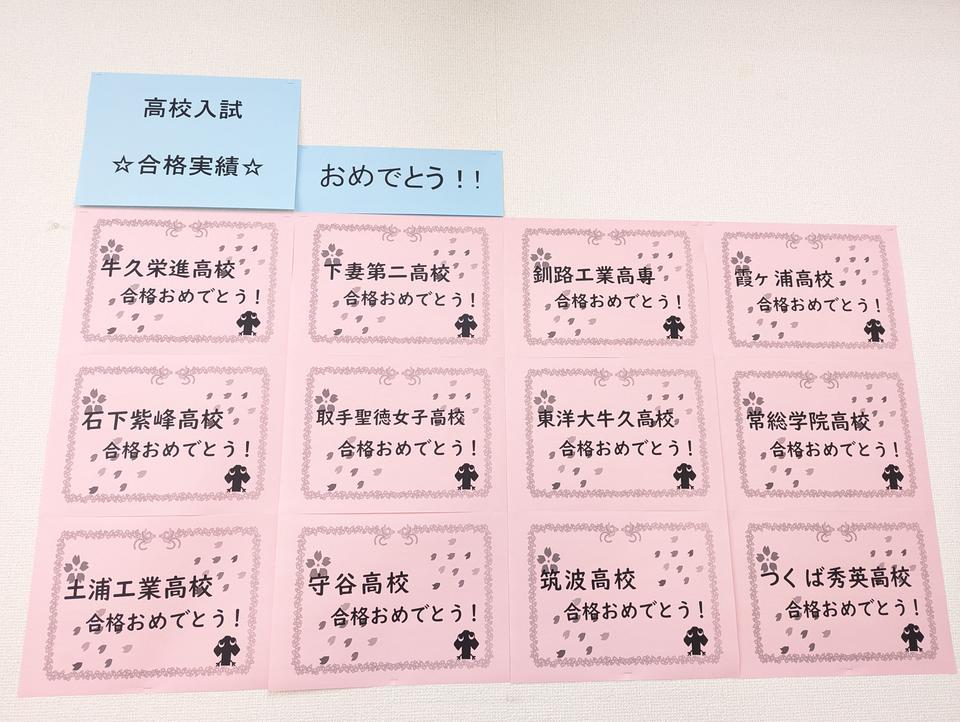 高校入試
☆合格実績☆
おめでとう！！
牛久栄進高校
合格おめでとう！
下妻第二高校
合格おめでとう！
釧路工業高専
合格おめでとう！
霞ヶ浦高校
合格おめでとう！
石下紫峰高校
合格おめでとう！
取手聖徳女子高校
合格おめでとう！
東洋大牛久高校
合格おめでとう！
常総学院高校
合格おめでとう！
土浦工業高校
合格おめでとう！
守谷高校
合格おめでとう！
筑波高校
合格おめでとう！
つくば秀英高校
合格おめでとう！